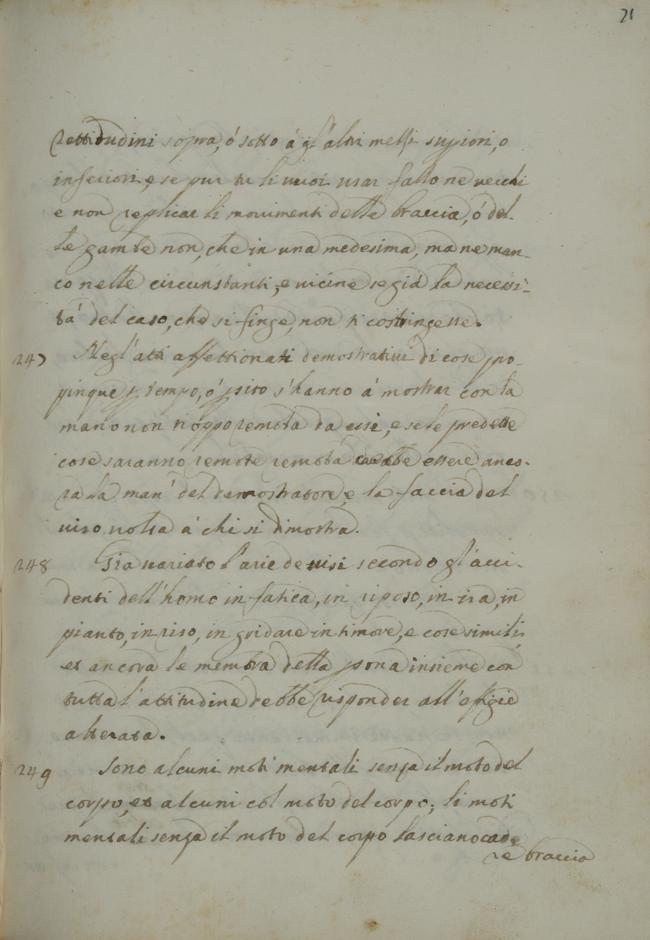 21
rettitudini sopra, ó sotto á gl'altri messi supiori, o
inferiori, e se pur tu li vuoi usar fallo ne vecchi
e non replicar li movimenti delle braccia, ó del-
le gambe non, che in una medesima, ma ne man-
co nelle circunstanti, e vicine se giá la necessi-
tá del caso, che si finge, non ti costringesse.
247 Negl'atti affettionati demostrativi di cose pro-
pinque p. tempo, ó psito s'hanno á mostrar con la
mano non troppo remota da essi, e se le predette
cose saranno remote remota debbe essere anco-
ra la man' del demostratore, e la faccia del
viso volta á chi si dimostra.
248 Sia variato l'arie de visi secondo gl'acci-
denti dell'homo in fatica, in riposo, in ira, in
pianto, in riso, in gridare in timore, e cose simili,
et ancora le membra della psona insieme con
tutta l'attitudine debbe risponder all'effigie
alterata.
249 Sono alcuni moti mentali senza il moto del
corpo, et alcuni col moto del corpo; li moti
mentali senza il moto del corpo lasciano cade
re braccia